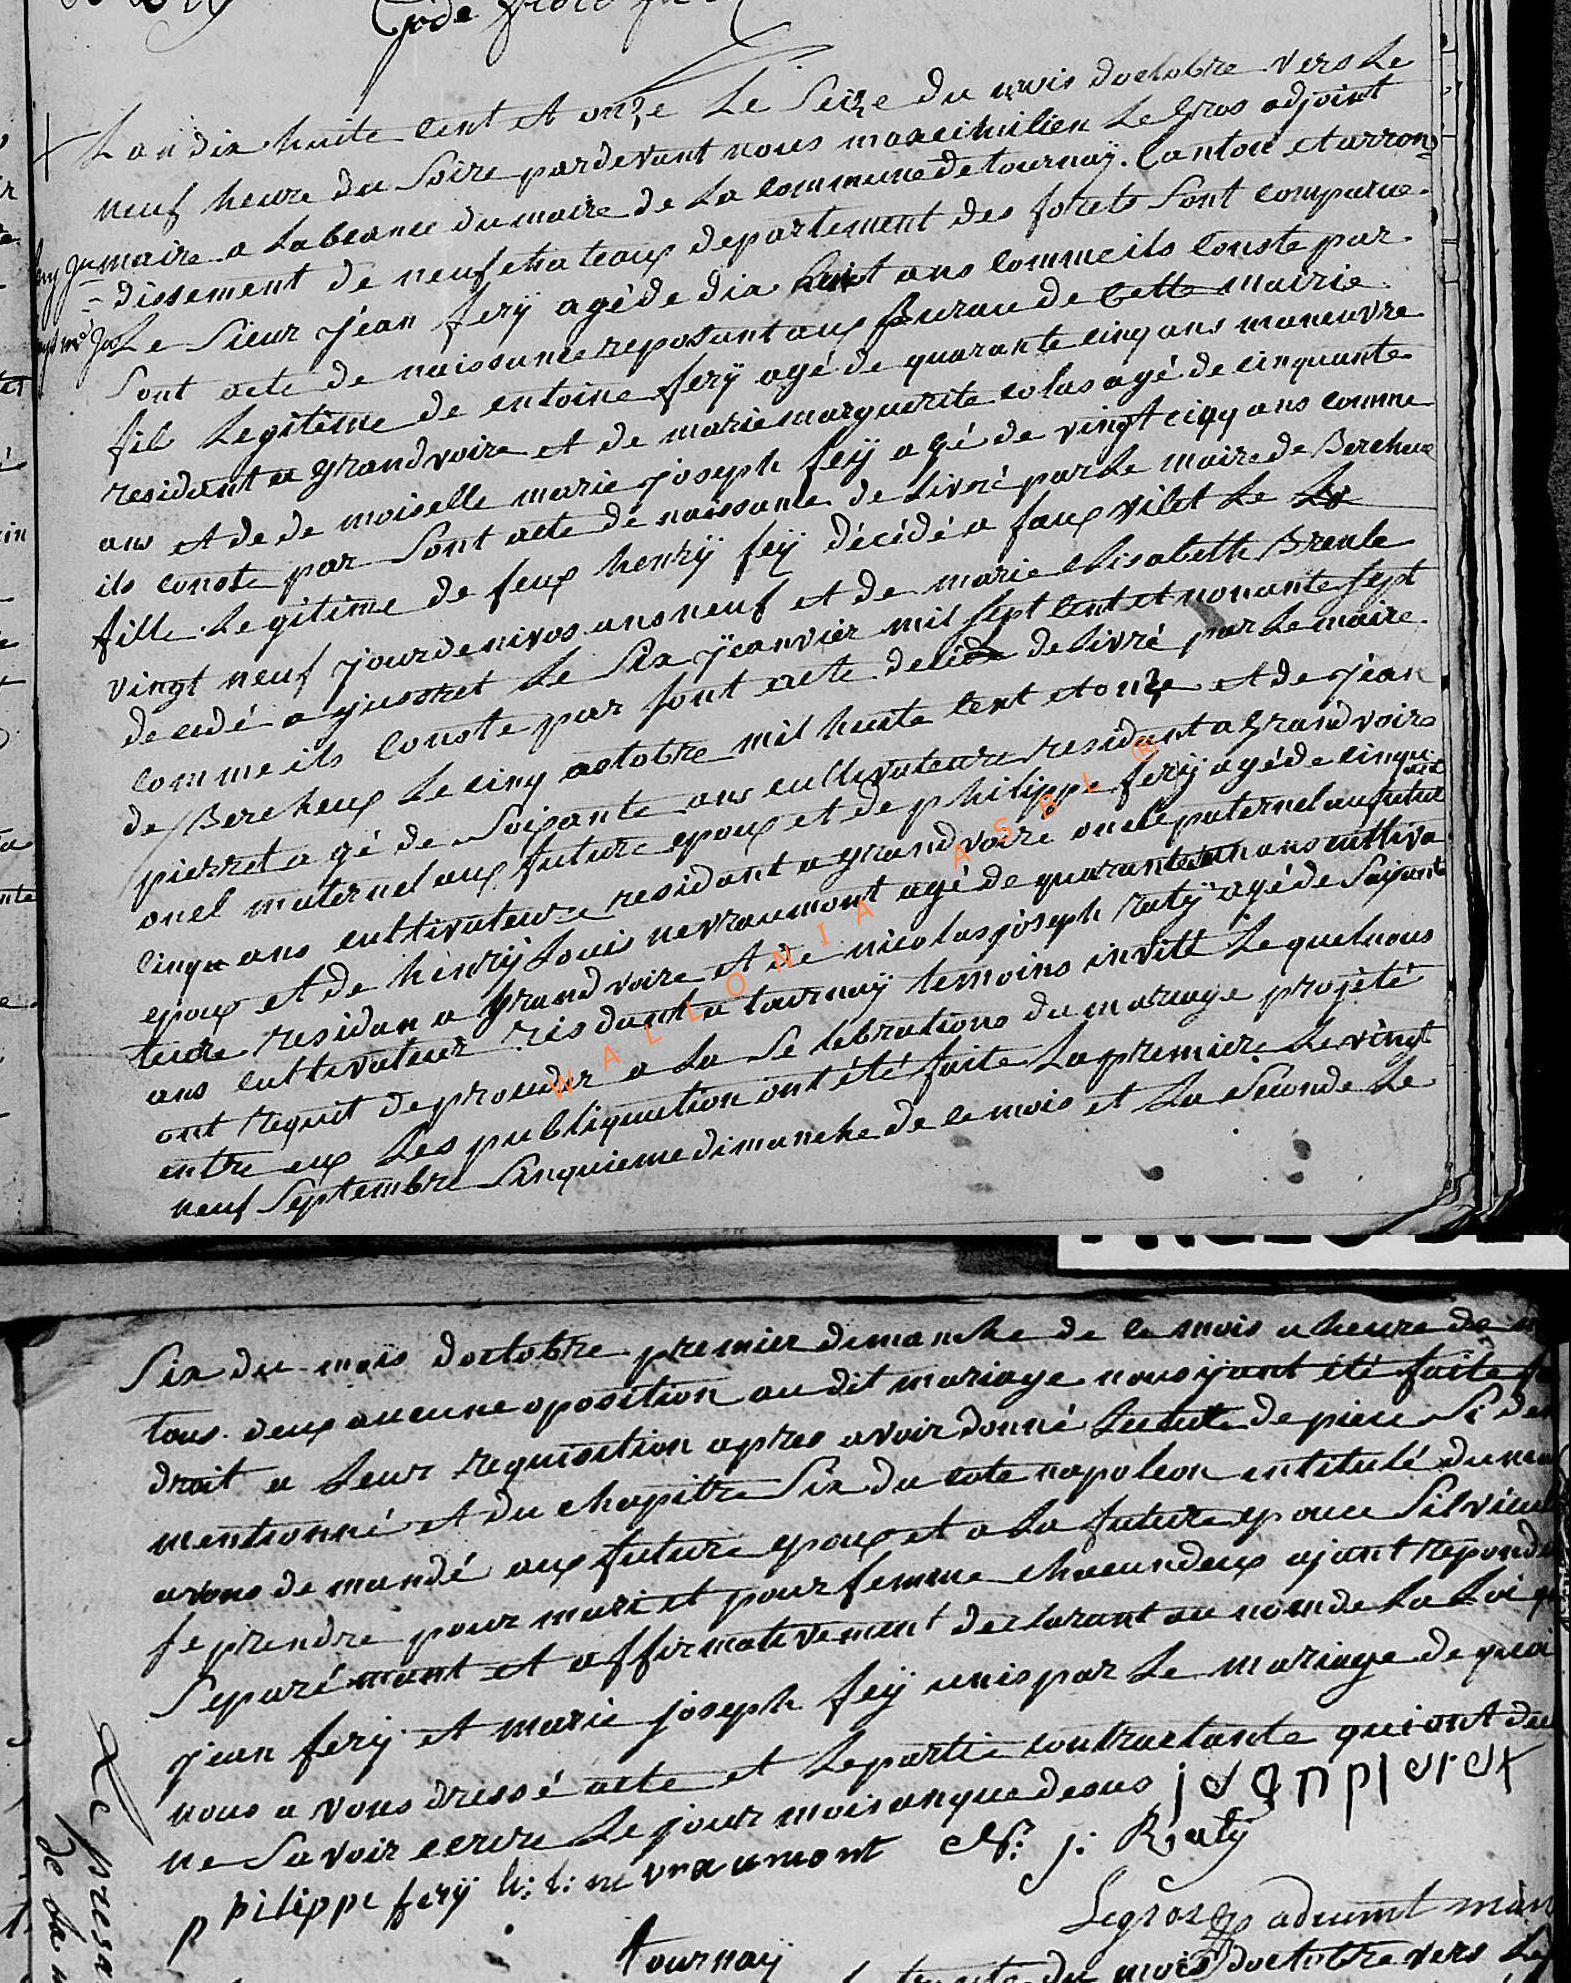 Lan dix huite cent et onze Le Seize du mois doctobre vers Le
neuf heure du Soire pardevant nous maximilien Le Gros adjoint
maire a Labcance du maire de La commune de tournaÿ. Canton et arron
dissement de neufchateaux departement des forets Sont comparue
Le Sieur jéan ferÿ agé de dix huit ans comme ils Conste par
Sont acte de naissance reposant aux Bureau de Cette mairie
fils Legitime de entoine ferÿ agé de quarante cinq ans maneuvre
residant a grandvoire et de marie marguerite colas agé de cinquante
ans et de demoiselle marie joseph feÿ agé de vingt cinq ans comme
ils conste par Sont acte de naissance de Livré par Le maire de Bercheux
fille Legitime de feux henrÿ feÿ décédé a faux vilet Le
vingt neuf jour de nivos ans neuf et de marie elisabette Breule
decedé a jusseret Le Six jeanvier mil Sept Cent et nonante Sept
comme ils Conste par Sont acte de livré par Le maire
de Bercheux Le cinq octobre mil huite Cent et onze et de jéan
pierret agé de Soixante ans cultivateure residant a Grandvoire
oncl maternel aux future epoux et de philippe ferÿ agé de cinquante
cinque ans cultivateure residant a grandvoire oncle paternel au futur
epoux et de hènrÿ Louis nevraumont agé de quarante un ans cultiva
teure residan a grandvoire et de nicolas joseph ratÿ agé de Soixante
ans cultivateur risdant a tournaÿ temoins invité Le quel nous
ont requit de proceder a La Selebrations du mariage projeté
entre eux Les publiquation ont été faite La premiere Le vingt
neuf Septembre Sinquieme dimanche de ce mois et La Seconde Le
WALLONIA ASBL ®
Six du mois doctobre premier dimanche de ce mois a heure de
tous deux aucune oposition au dit mariage nous ÿant été faite
droit a Leur requisition apres avoir donné Lecture de piece Si
mentionné et du chapitre Six du code napoleon intitulé du
avons demandé aux future epoux et a La future epouce Sil veule
Se prendre pour mari et pour femme chacun deux ajant repondu
Separémant et affirmativement declarant au nom de La Loi
jean ferÿ et marie joseph feÿ unis par Le mariage de quoi
nous avons dressé acte et Le partie contractante qui ont
ne Savoir ecrire Le jour mois an que desus jeanpieret
philippe ferÿ h: l: nevraumont N: j: Ratÿ
Legros adjoint
tournaÿ
du mois doctobre vers Le